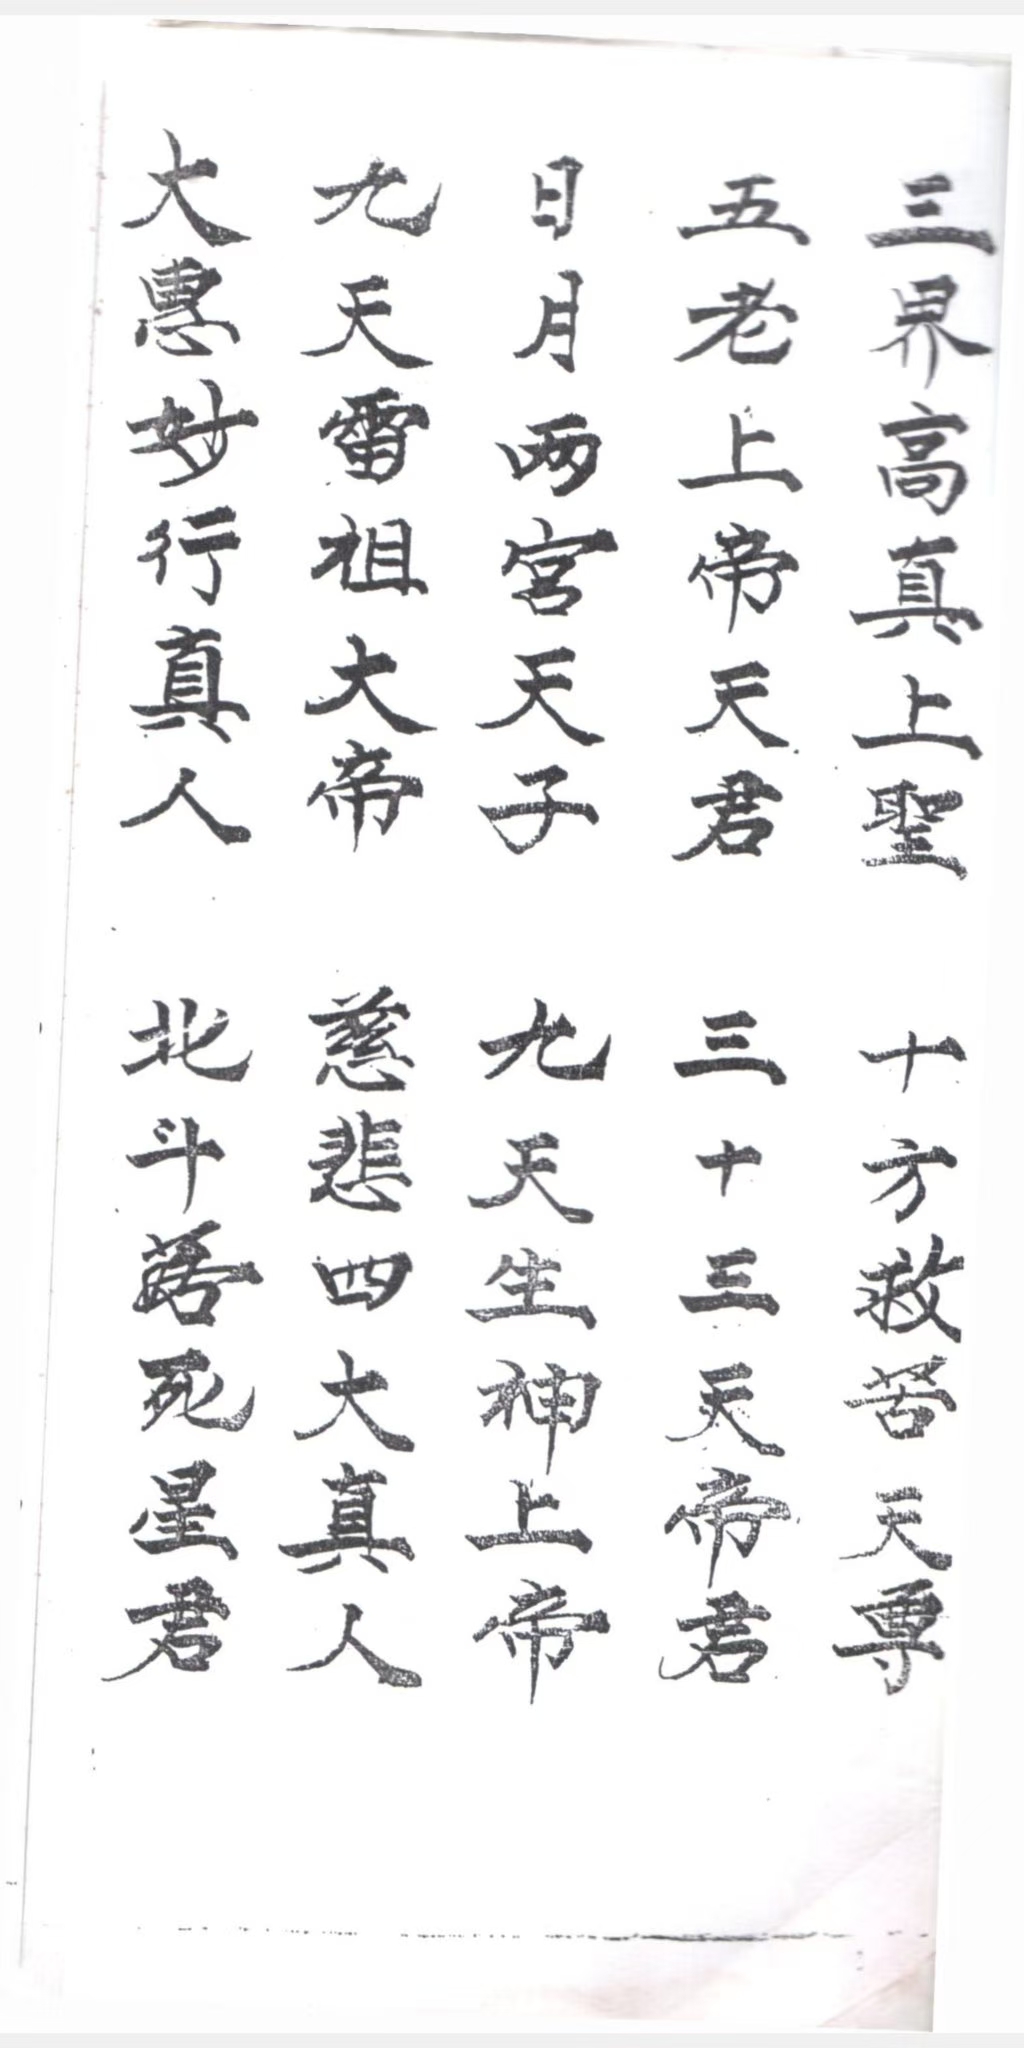 三界高真上聖 十方救苦天尊
五老上帝天君 三十三天帝君
日月两宮天子 九天生神上帝
九天雷祖大帝 慈悲四大真人
大惠妙行真人 北斗落死星君